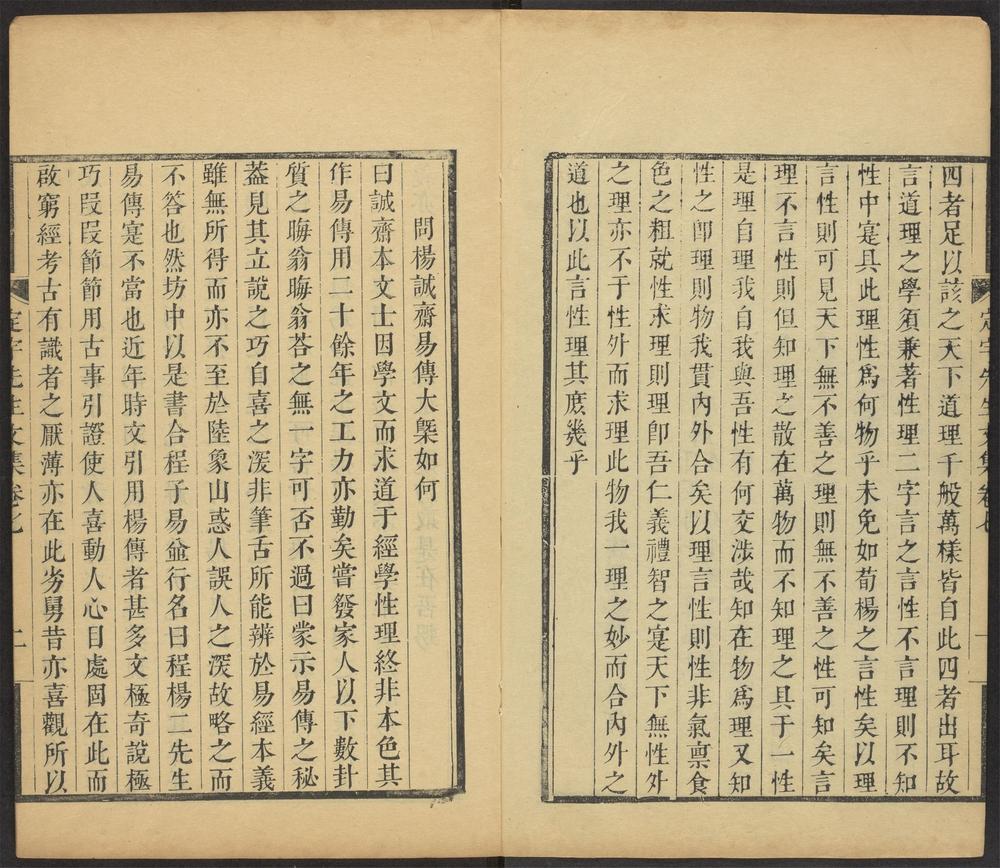 四者足以該之天下道理千般萬樣皆自此四者出耳故
言道理之學須兼著性理二字言之言性不言理則不知
性中寔具此理性爲何物乎未免如荀楊之言性矣以理
言性則可見天下無不善之理則無不善之性可知矣言
理不言性則但知理之散在萬物而不知理之具于一性
是理自理我自我與吾性有何交涉哉知在物爲理又知
性之卽理則物我貫內外合矣以理言性則性非氣禀食
色之粗就性求理則理卽吾仁義禮智之寔天下無性外
之理亦不于性外而求理此物我一理之妙而合內外之
道也以此言性理其庻幾乎
定宇先生文集卷七
一
問楊誠齋易傳大槩如何
曰誠齋本文士因學文而求道于經學性理終非本色其
作易傳用二十餘年之工力亦勤矣嘗發家人以下數卦
質之晦翁晦翁荅之無一字可否不過曰蒙示易傳之秘
葢見其立說之巧自喜之深非筆舌所能辨於易經本義
雖無所得而亦不至於陸象山惑人誤人之深故略之而
不答也然坊中以是書合程子易並行名曰程楊二先生
易傳寔不當也近年時文引用楊傳者甚多文極奇說極
巧段段節節用古事引證使人喜動人心目處固在此而
啟窮經考古有識者之厭薄亦在此岁舅昔亦喜觀所以
定宇先生文集卷七
二